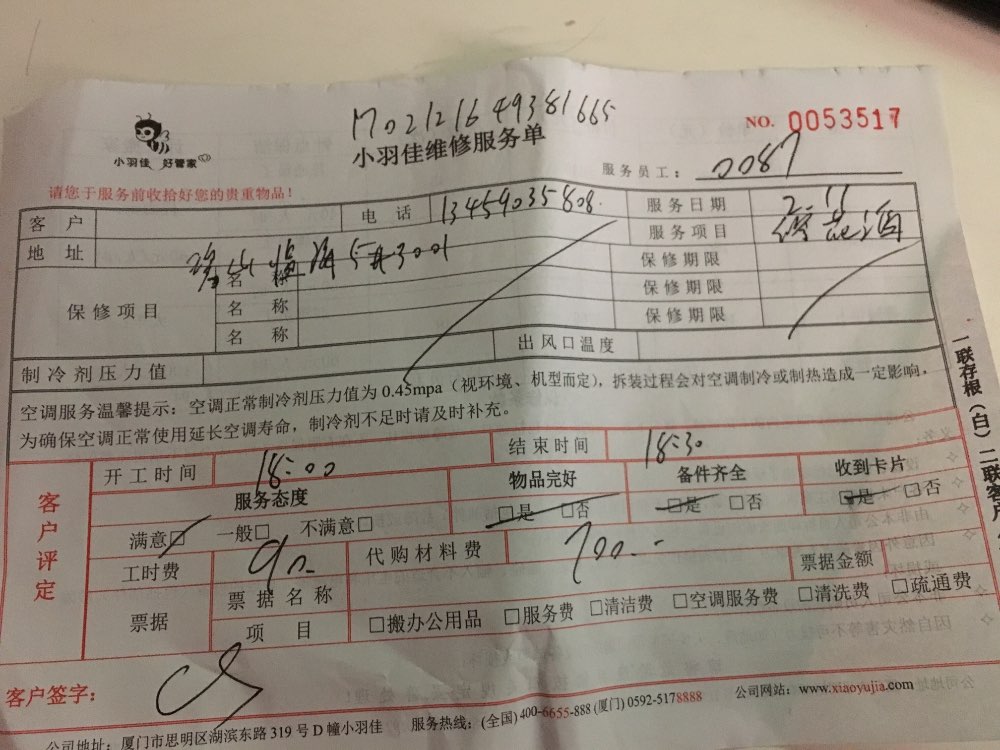 1702121649381665
小羽佳 好管家
小羽佳维修服务单
NO. 0053517
服务员工: 0087
请您于服务前收拾好您的贵重物品!
客 户 电 话 13459035808 服务日期 2.11
地 址 服务项目
保修项目 名 称 保修期限
名 称 保修期限
名 称 保修期限
制冷剂压力值 出风口温度
空调服务温馨提示:空调正常制冷剂压力值为 0.45mpa(视环境、机型而定),拆装过程会对空调制冷或制热造成一定影响,
为确保空调正常使用延长空调寿命,制冷剂不足时请及时补充。
客户评定
开工时间 18:00 结束时间 18:30
服务态度 物品完好 备件齐全 收到卡片
满意□ 一般□ 不满意□ □是 □否 □是 □否 □是 □否
工时费 90 代购材料费 700 票据金额
票据 票据名称
项 目 □搬办公用品 □服务费 □清洁费 □空调服务费 □清洗费 □疏通费
客户签字:
公司地址:厦门市思明区湖滨东路 319 号 D 幢小羽佳 服务热线:(全国) 400-6655-888 (厦门) 0592-5178888 公司网站:www.xiaoyujia.com
一联存根(白)二联客户